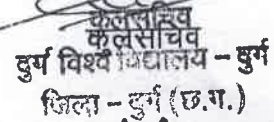 कुलसचिव
कुलसचिव
दुर्ग विश्वविद्यालय – दुर्ग
जिला – दुर्ग (छ.ग.)